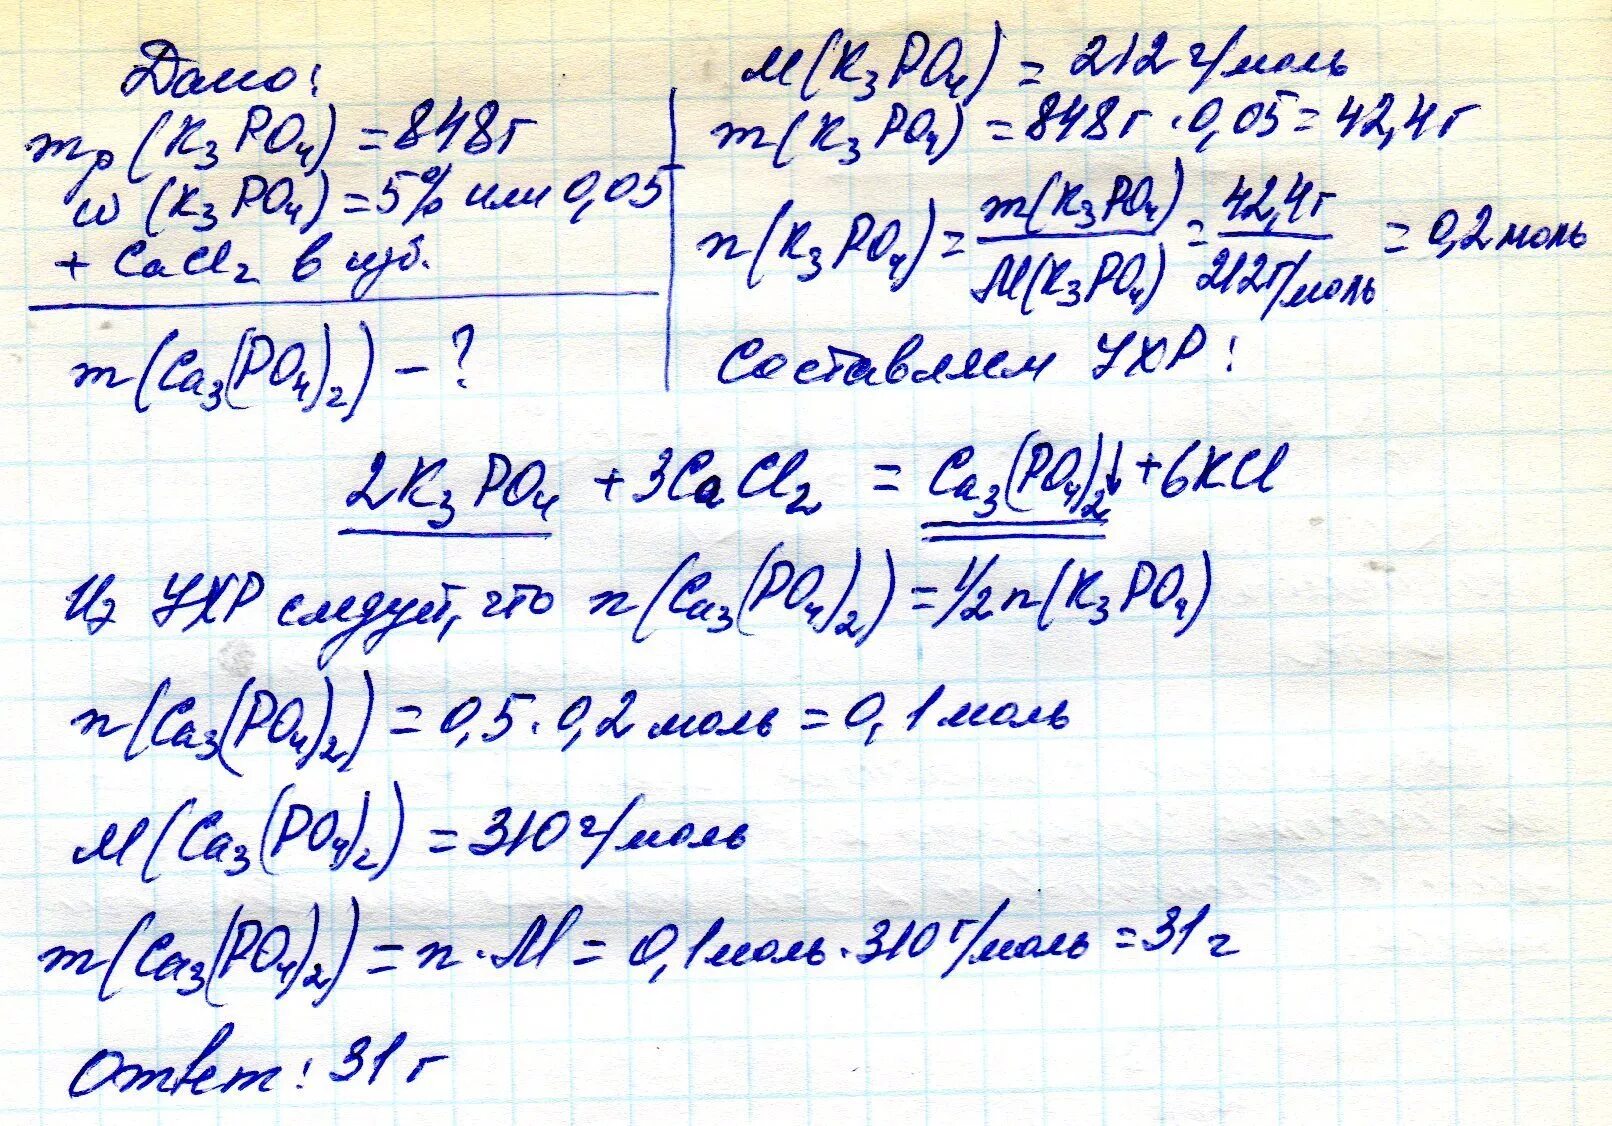 Дано:
mр(K₃PO₄) = 848г
w(K₃PO₄) = 5% или 0,05
+ CaCl₂ в изб.
m(Ca₃(PO₄)₂) – ?
M(K₃PO₄) = 212 г/моль
m(K₃PO₄) = 848г · 0,05 = 42,4г
n(K₃PO₄) = m(K₃PO₄)/M(K₃PO₄) = 42,4г/212г/моль = 0,2 моль
Составляем УХР:
2K₃PO₄ + 3CaCl₂ = Ca₃(PO₄)₂↓ + 6KCl
Из УХР следует, что n(Ca₃(PO₄)₂) = 1/2 n(K₃PO₄)
n(Ca₃(PO₄)₂) = 0,5 · 0,2 моль = 0,1 моль
M(Ca₃(PO₄)₂) = 310 г/моль
m(Ca₃(PO₄)₂) = n · M = 0,1 моль · 310 г/моль = 31 г
Ответ: 31 г